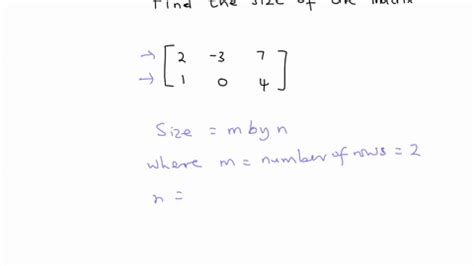 Find the size of the matrix
→ [ 2 -3 7 ]
→ [ 1 0 4 ]
Size = m by n
where m = number of rows = 2
n =